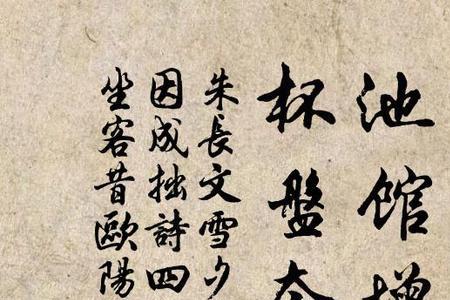 池館增
杯盤
朱長文雪夕
因成拙詩四
坐客昔歐陽